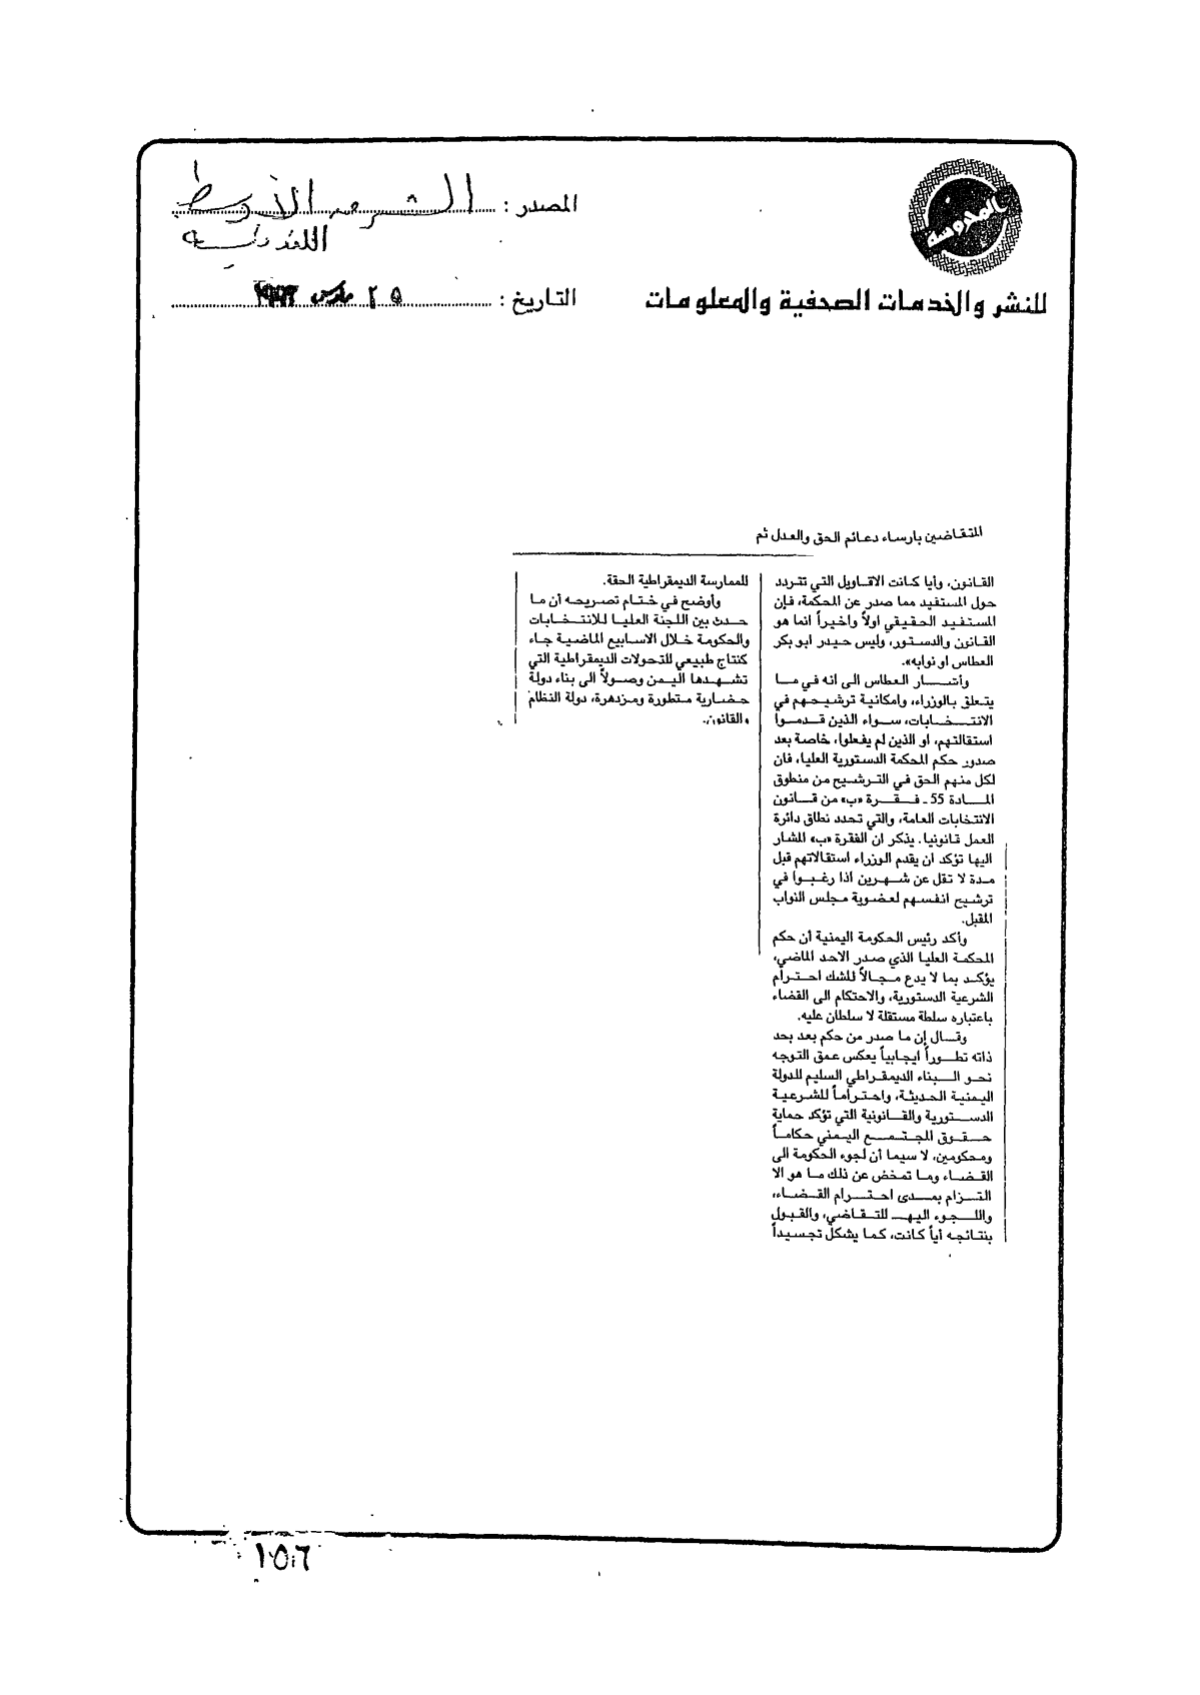 المحروسة
للنشر والخدمات الصحفية والمعلومات
المصدر : الشرق الأوسط
اللندنية
التاريخ : ٢٥ مارس ١٩٩٣
المتقاضين بارساء دعائم الحق والعدل ثم
القانون، وأيا كانت الاقاويل التي تتردد
حول المستفيد مما صدر عن المحكمة، فإن
المستفيد الحقيقي اولاً واخيراً انما هو
القانون والدستور، وليس حيدر ابو بكر
العطاس او نوابه».
وأشار العطاس الى انه في ما
يتعلق بالوزراء، وامكانية ترشيحهم في
الانتخابات، سواء الذين قدموا
استقالتهم، او الذين لم يفعلوا، خاصة بعد
صدور حكم المحكمة الدستورية العليا، فان
لكل منهم الحق في الترشيح من منطوق
المادة 55 ـ فقرة «ب» من قانون
الانتخابات العامة، والتي تحدد نطاق دائرة
العمل قانونيا. يذكر ان الفقرة «ب» المشار
اليها تؤكد ان يقدم الوزراء استقالاتهم قبل
مدة لا تقل عن شهرين اذا رغبوا في
ترشيح انفسهم لعضوية مجلس النواب
المقبل.
وأكد رئيس الحكومة اليمنية أن حكم
المحكمة العليا الذي صدر الاحد الماضي،
يؤكد بما لا يدع مجالاً للشك احترام
الشرعية الدستورية، والاحتكام الى القضاء
باعتباره سلطة مستقلة لا سلطان عليه.
وقال إن ما صدر من حكم بعد بحد
ذاته تطوراً ايجابياً يعكس عمق التوجه
نحو البناء الديمقراطي السليم للدولة
اليمنية الحديثة، واحتراماً للشرعية
الدستورية والقانونية التي تؤكد حماية
حقوق المجتمع اليمني حكاماً
ومحكومين، لا سيما أن لجوء الحكومة الى
القضاء وما تمخض عن ذلك ما هو الا
التزام بمدى احترام القضاء،
واللجوء اليه للتقاضي، والقبول
بنتائجه أياً كانت، كما يشكل تجسيداً
للممارسة الديمقراطية الحقة.
وأوضح في ختام تصريحه أن ما
حدث بين اللجنة العليا للانتخابات
والحكومة خلال الاسابيع الماضية جاء
كنتاج طبيعي للتحولات الديمقراطية التي
تشهدها اليمن وصولاً الى بناء دولة
حضارية متطورة ومزدهرة، دولة النظام
والقانون.
١٥٦